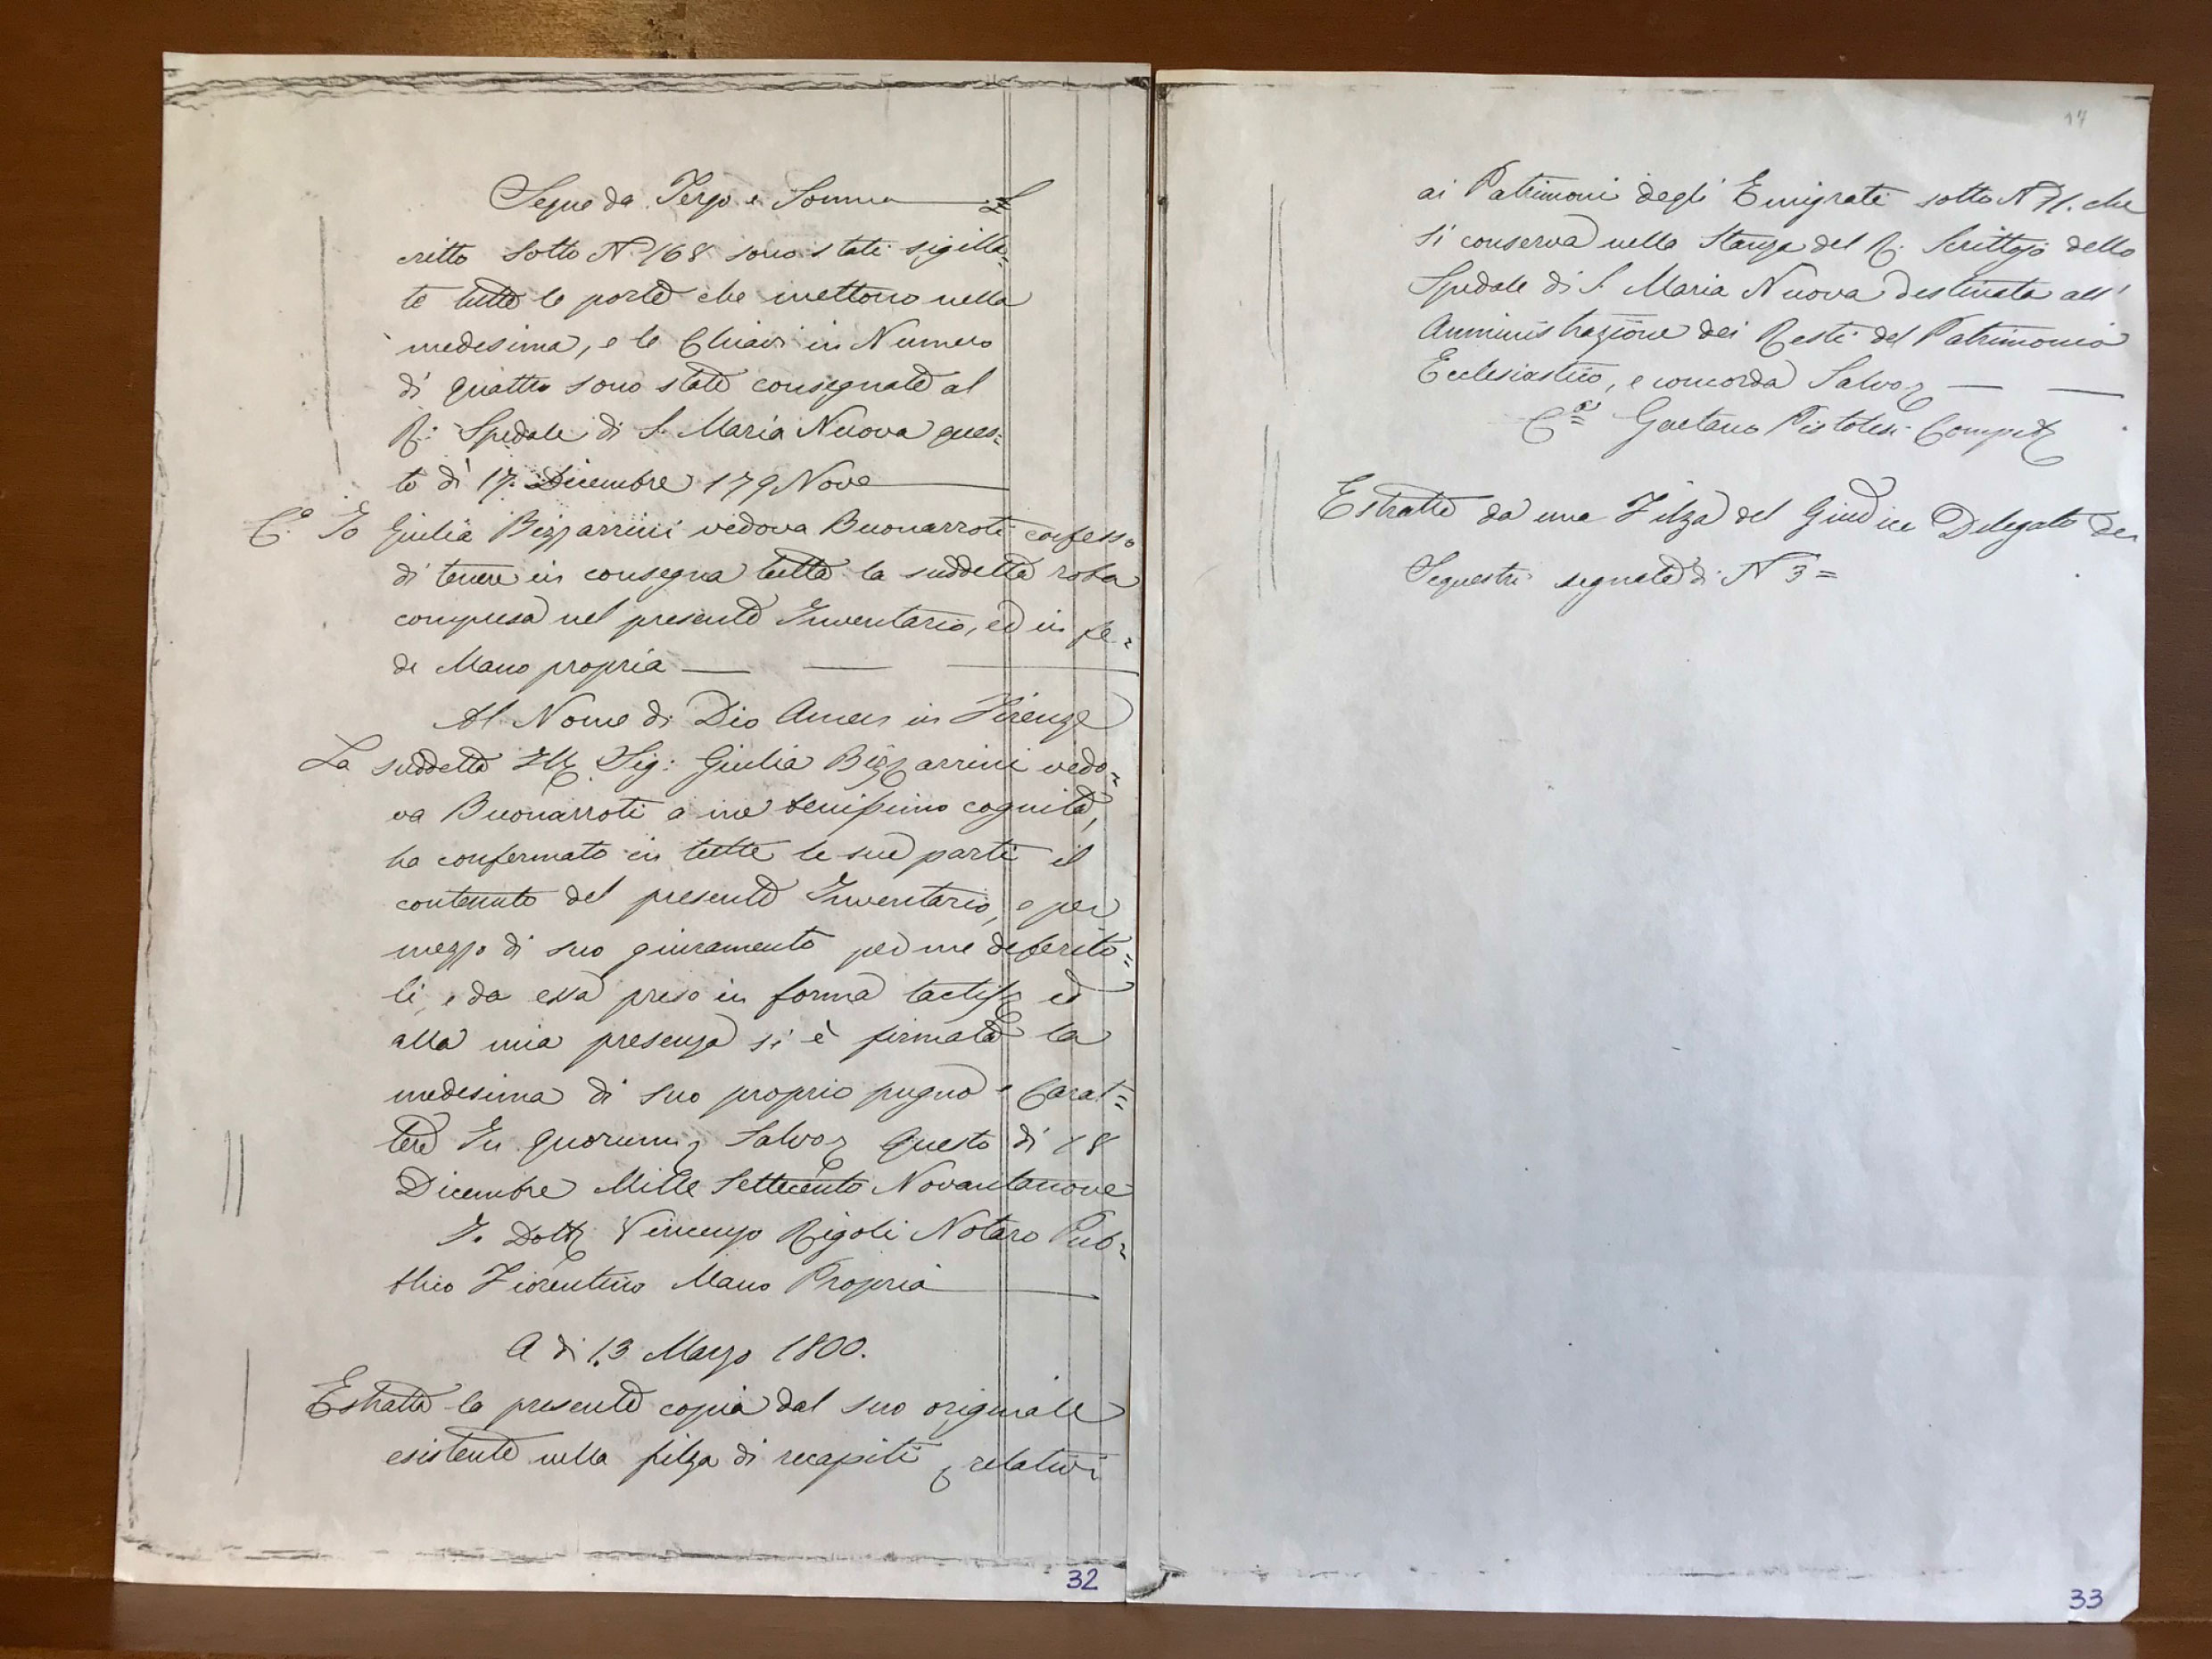 Segue da Tergo e Somma £
critto sotto N° 168 sono stati sigilla=
te tutte le porte che mettono nella
medesima, e le Chiavi in Numero
di quattro sono state consegnate al
R: Spedale di S. Maria Nuova ques=
to dì 17. Dicembre 179 Nove
Co. Io Giulia Bizzarrini vedova Buonarroti confesso
di tenere in consegna tutta la suddetta roba
compresa nel presente Inventario, ed in fe=
de Mano propria
Al Nome di Dio Amen in Firenze
La suddetta Ill. Sig: Giulia Bizzarrini vedo=
va Buonarroti a me benissimo cognita,
ha confermato in tutte le sue parti il
contenuto del presente Inventario, e per
mezzo di suo giuramento per me deferito=
li, e da essa preso in forma tactis ed
alla mia presenza si è firmata la
medesima di suo proprio pugno e Carat=
tere In quorum Salvo questo dì 18
Dicembre Mille Settecento Novantanove
Io Dott. Vincenzo Rigoli Notaro Pub=
blico Fiorentino Mano Propria
A di 13 Marzo 1800.
Estratta la presente copia dal suo originale
esistente nella filza di recapiti relativi
32
17
ai Patrimoni degli Emigrati sotto N 71. che
si conserva nella Stanza del R. Scrittojo dello
Spedale di S. Maria Nuova destinata all'
Amministrazione dei Resti del Patrimonio
Ecclesiastico, e concorda Salvo
Gaetano Pistolesi Compta
Estratte da una Filza del Giudice Delegato dei
Sequestri segnata di N 3 =
33